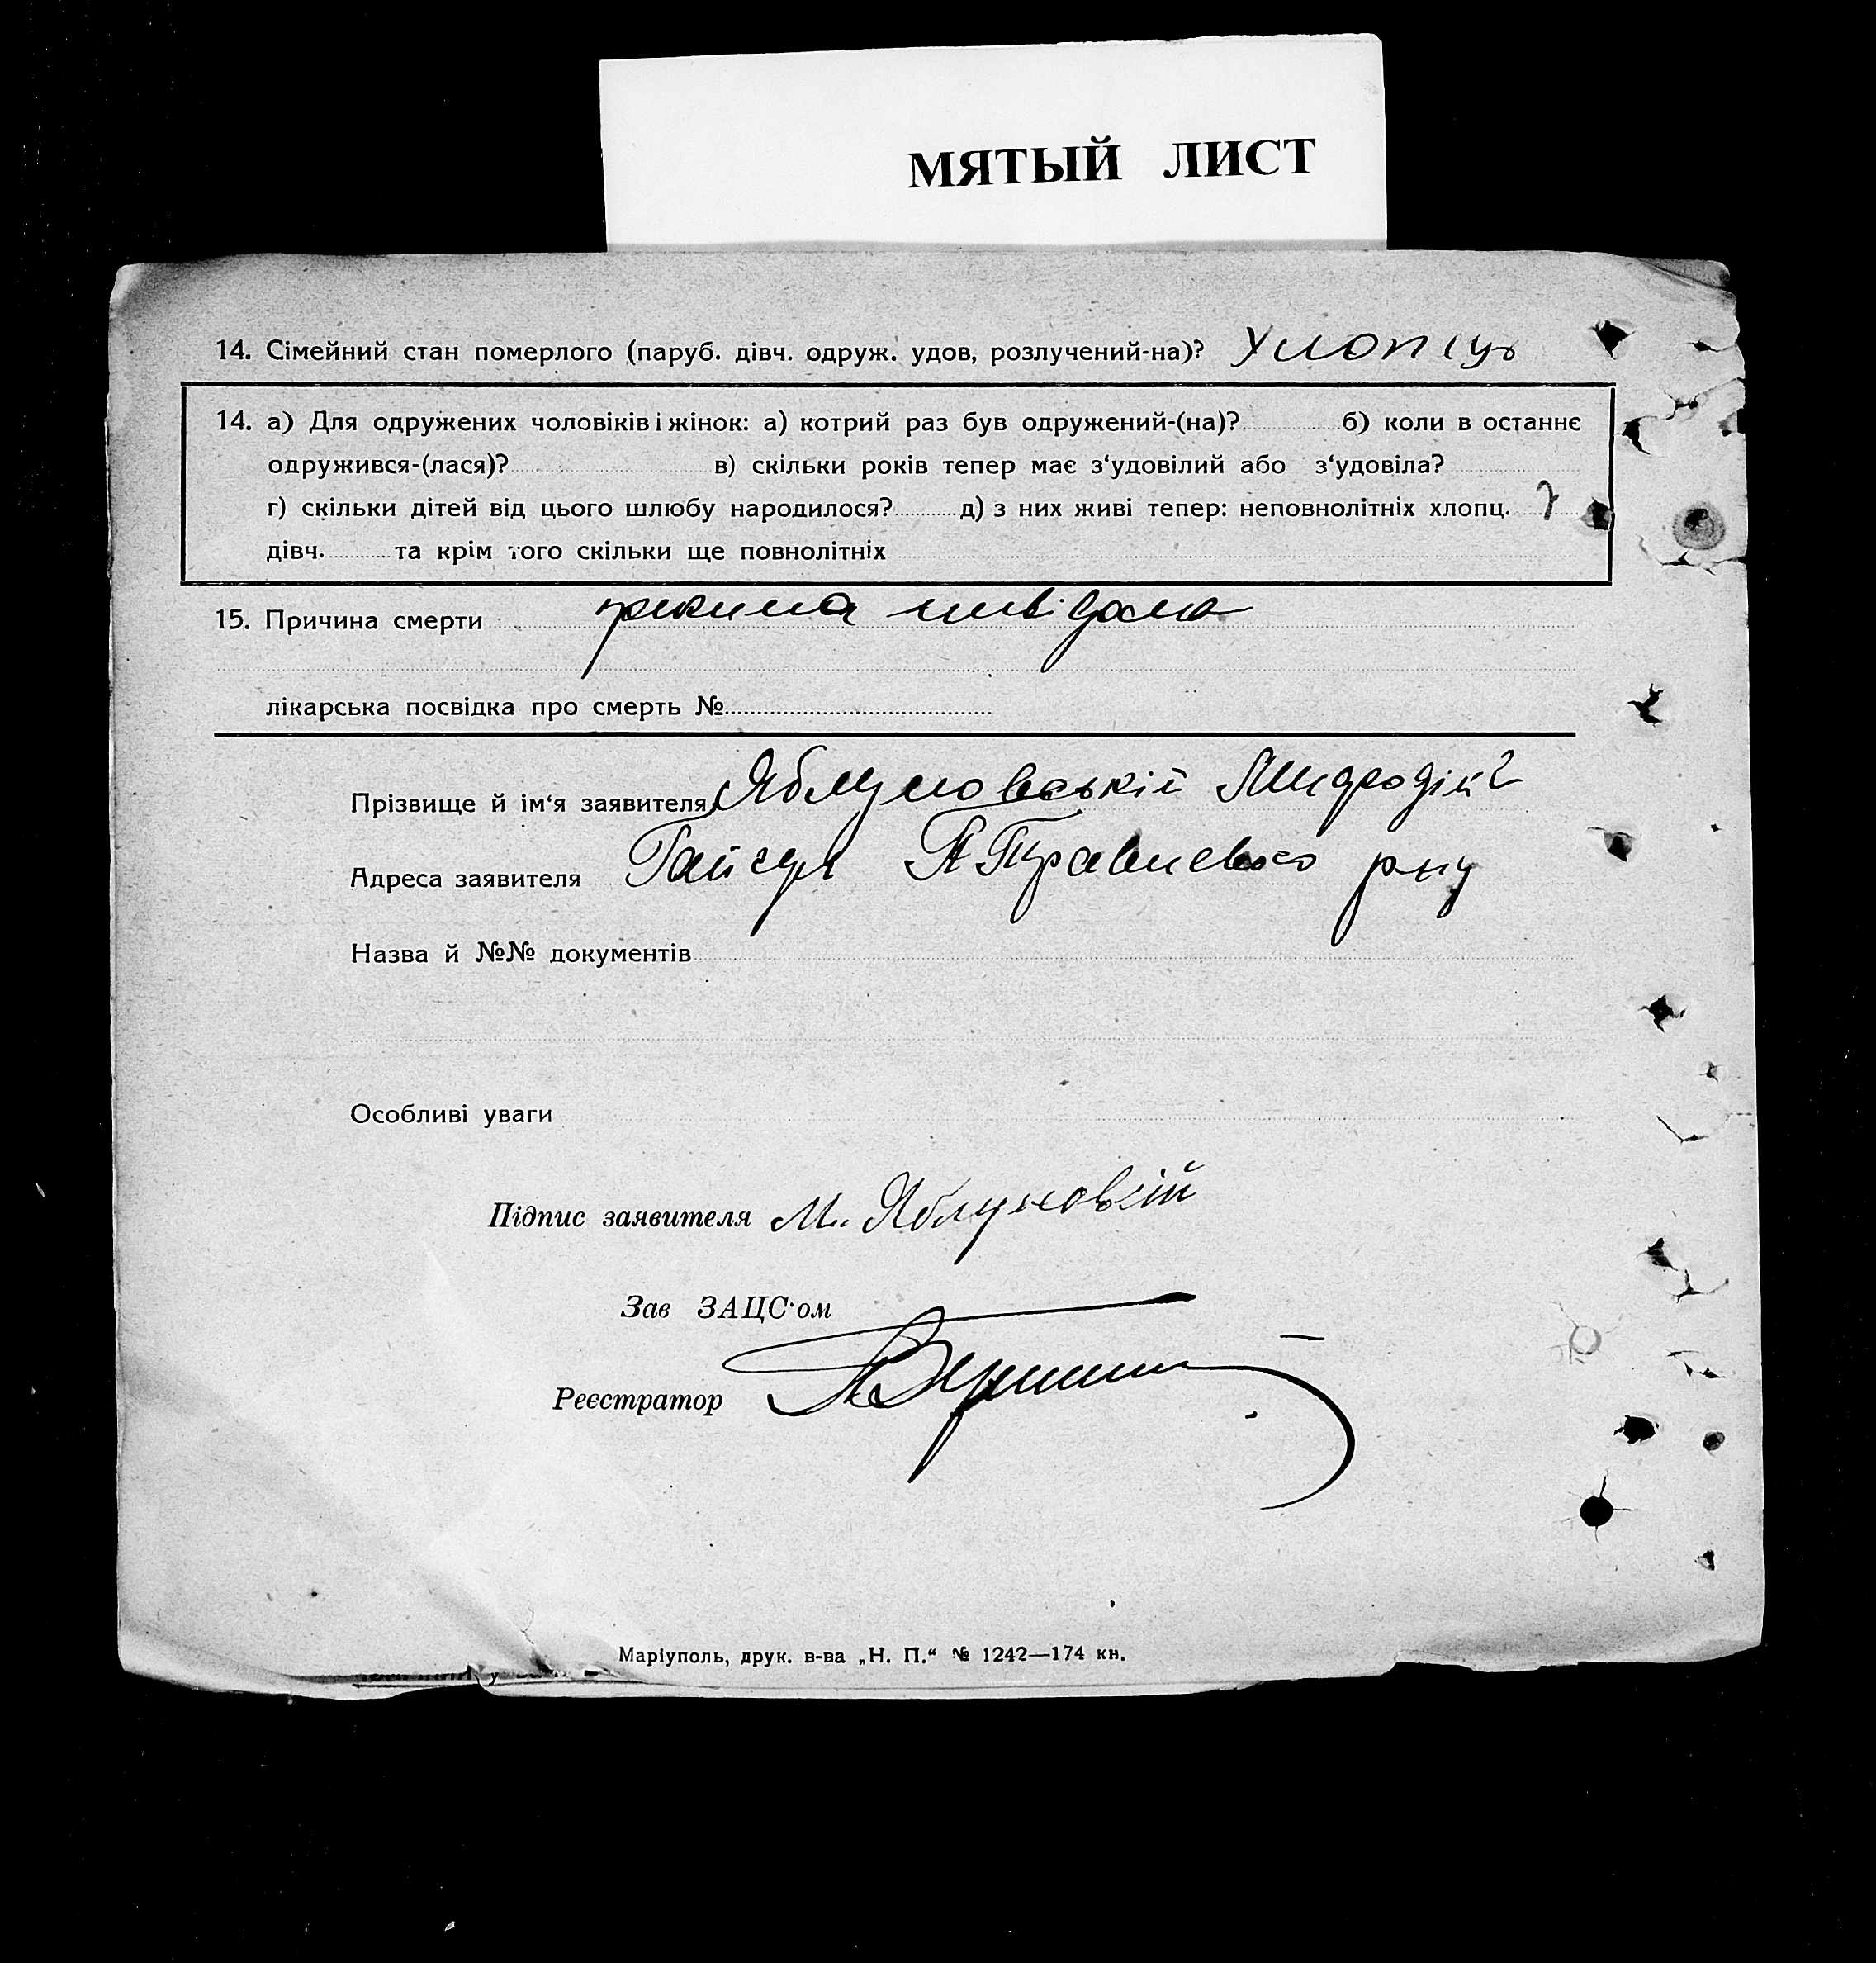 МЯТЫЙ ЛИСТ
14. Сімейний стан померлого (паруб. дівч. одруж. удов, розлучений-на)? Хлопець
14. а) Для одружених чоловіків і жінок: а) котрий раз був одружений-(на)? б) коли в останнє
одружився-(лася)? в) скільки років тепер має з‘удовілий або з‘удовіла?
г) скільки дітей від цього шлюбу народилося? д) з них живі тепер: неповнолітніх хлопц.
дівч. та крім того скільки ще повнолітніх
15. Причина смерти невідома
лікарська посвідка про смерть №
Прізвище й ім‘я заявителя Яблуновській
Адреса заявителя Гайсул р-ну
Назва й №№ документів
Особливі уваги
Підпис заявителя М. Яблуновскій
Зав ЗАЦС‘ом
Реєстратор
Маріуполь, друк. в-ва „Н. П.“ № 1242—174 кн.